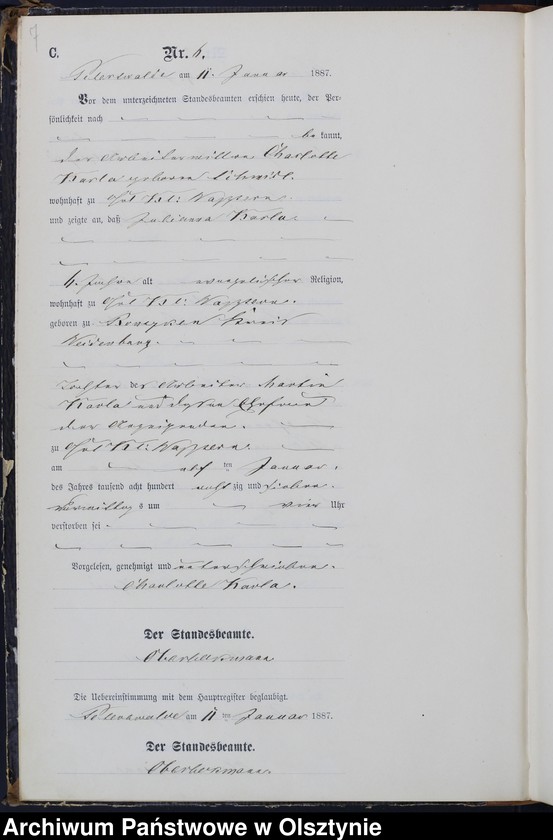 7
C. Nr. 6.
Peterswalde am 11. Januar 1887.
Vor dem unterzeichneten Standesbeamten erschien heute, der Per-
sönlichkeit nach
bekannt,
die Arbeiterwittwe Charlotte
Karla geborene Schmidt.
wohnhaft zu Gut Kl: Nappern
und zeigte an, daß Julianna Karla
4 Jahre alt evangelischer Religion,
wohnhaft zu Gut Kl: Nappern.
geboren zu Kreis
Neidenburg.
Tochter des Arbeiter Martin
Karla und dessen Ehefrau
der Anzeigenden.
zu Gut Kl: Nappern.
am ten Januar.
des Jahres tausend acht hundert achtzig und sieben
Vormittags um vier Uhr
verstorben sei
Vorgelesen, genehmigt und unterschrieben.
Charlotte Karla.
Der Standesbeamte.
Die Uebereinstimmung mit dem Hauptregister beglaubigt.
Peterswalde am 11 ten Januar 1887.
Der Standesbeamte.
Archiwum Państwowe w Olsztynie